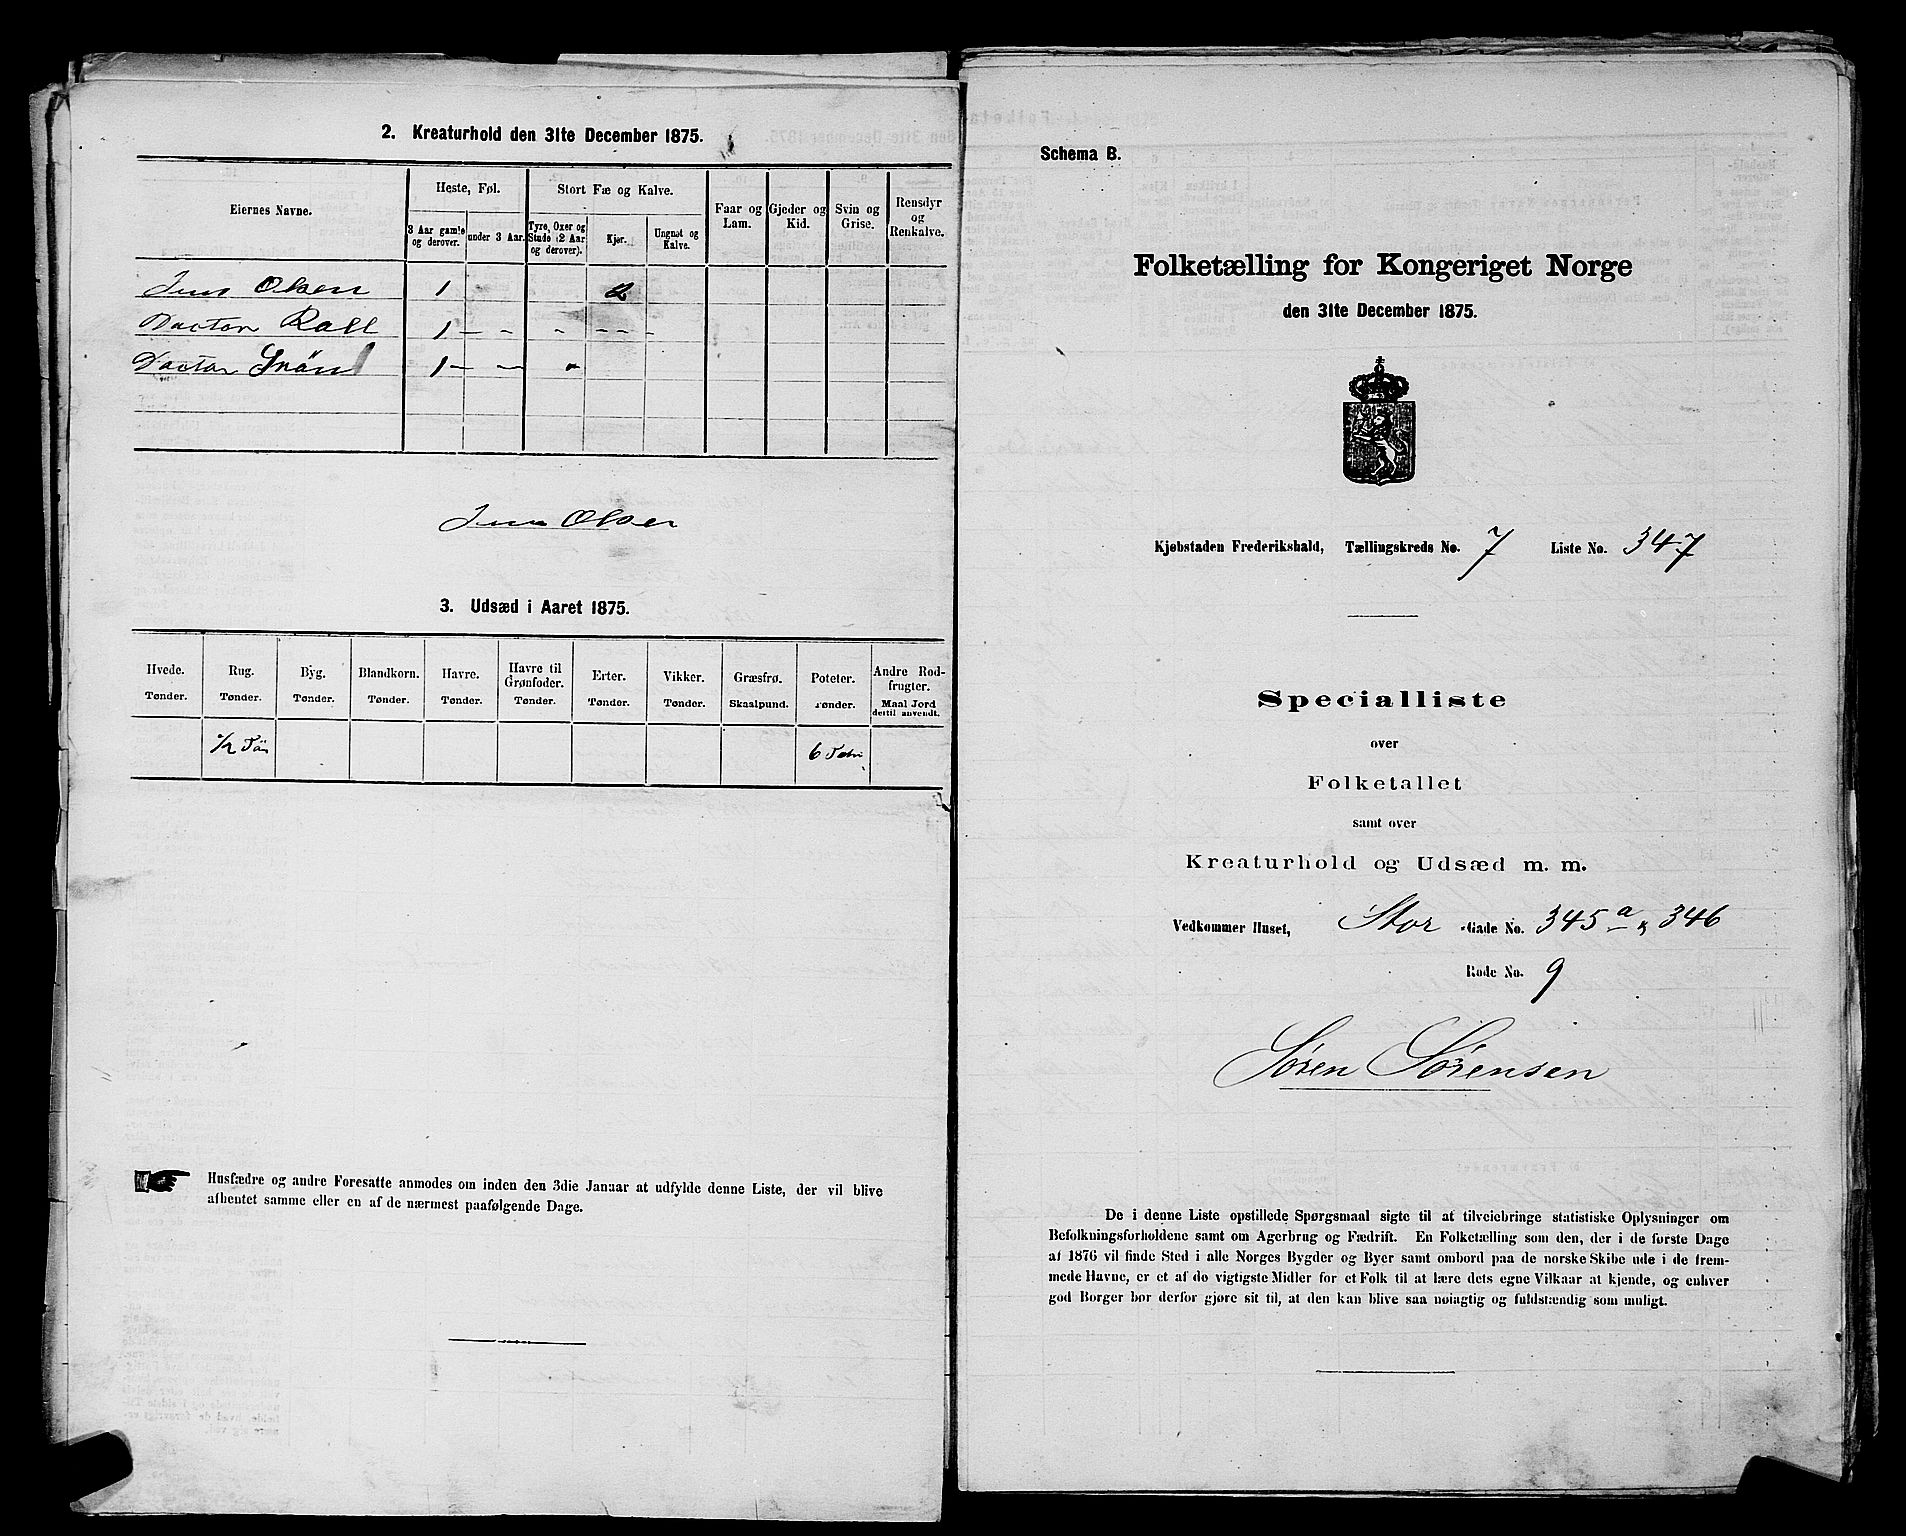 2. Kreaturhold den 31te December 1875.
Eiernes Navne.
Heste, Føl.
Stort Fæ og Kalve.
Faar og Lam.
Gjeder og Kid.
Svin og Grise.
Rensdyr og Renkalve.
3 Aar gamle og derover.
under 3 Aar.
Tyre, Oxer og Stude (2 Aar og derover).
Kjør.
Ungnøt og Kalve.
Jens Olsen 1 2
Doctor Roll 1 – – – – – –
Doctor 1 – – –
Jens Olsen
3. Udsæd i Aaret 1875.
Hvede. Rug. Byg. Blandkorn. Havre. Havre til Grønfoder. Erter. Vikker. Græsfrø. Poteter. Andre Rodfrugter.
Tønder. Tønder. Tønder. Tønder. Tønder. Tønder. Tønder. Tønder. Skaalpund. Tønder. Maal Jord dertil anvendt.
1/2 Tön 6
Husfædre og andre Foresatte anmodes om inden den 3die Januar at udfylde denne Liste, der vil blive
afhentet samme eller en af de nærmest paafølgende Dage.
Schema B.
Folketælling for Kongeriget Norge
den 31te December 1875.
Kjøbstaden Frederikshald, Tællingskreds No. 7 Liste No. 347
Specialliste
over
Folketallet
samt over
Kreaturhold og Udsæd m. m.
Vedkommer Huset, Stor -Gade No. 345 a & 346
Rode No. 9
Søren Sørensen
De i denne Liste opstillede Spørgsmaal sigte til at tilveiebringe statistiske Oplysninger om
Befolkningsforholdene samt om Agerbrug og Fædrift. En Folketælling som den, der i de første Dage
af 1876 vil finde Sted i alle Norges Bygder og Byer samt ombord paa de norske Skibe ude i de frem-
mede Havne, er et af de vigtigste Midler for et Folk til at lære dets egne Vilkaar at kjende, og enhver
god Borger bør derfor gjøre sit til, at den kan blive saa nøiagtig og fuldstændig som muligt.